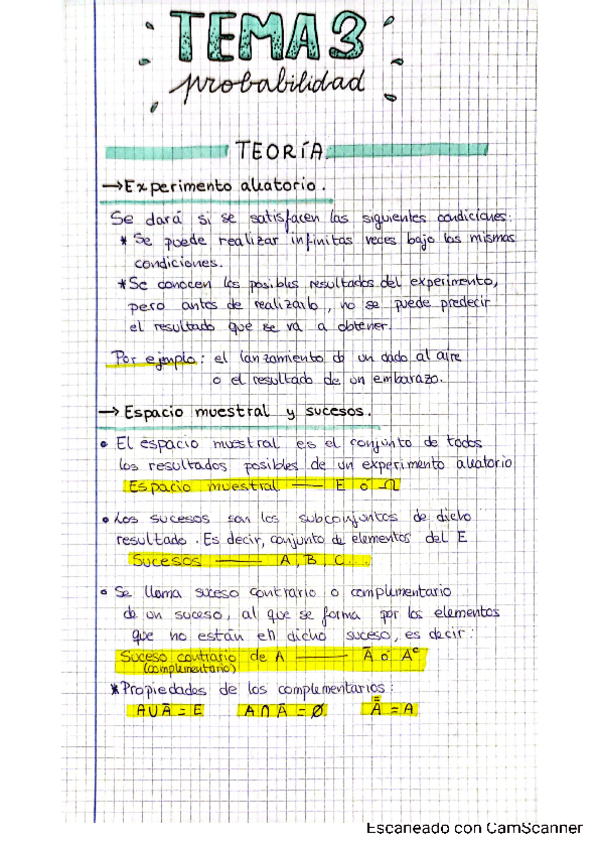 TEMA 3
probabilidad
TEORÍA
→Experimento aleatorio.
Se dará si se satisfacen las siguientes condiciones:
* Se puede realizar infinitas veces bajo las mismas
condiciones.
* Se conocen los posibles resultados del experimento,
pero antes de realizarlo, no se puede predecir
el resultado que se va a obtener.
Por ejemplo: el lanzamiento de un dado al aire
o el resultado de un embarazo.
→ Espacio muestral y sucesos.
• El espacio muestral es el conjunto de todos
los resultados posibles de un experimento aleatorio
Espacio muestral — E o Ω
• Los sucesos son los subconjuntos de dicho
resultado. Es decir, conjunto de elementos del E
Sucesos — A, B, C...
• Se llama suceso contrario o complementario
de un suceso, al que se forma por los elementos
que no están en dicho suceso, es decir:
Suceso contrario de A — Ā ó Aᶜ
(complementario)
*Propiedades de los complementarios:
A∪Ā = E A∩Ā = Ø A̿ = A
Escaneado con CamScanner